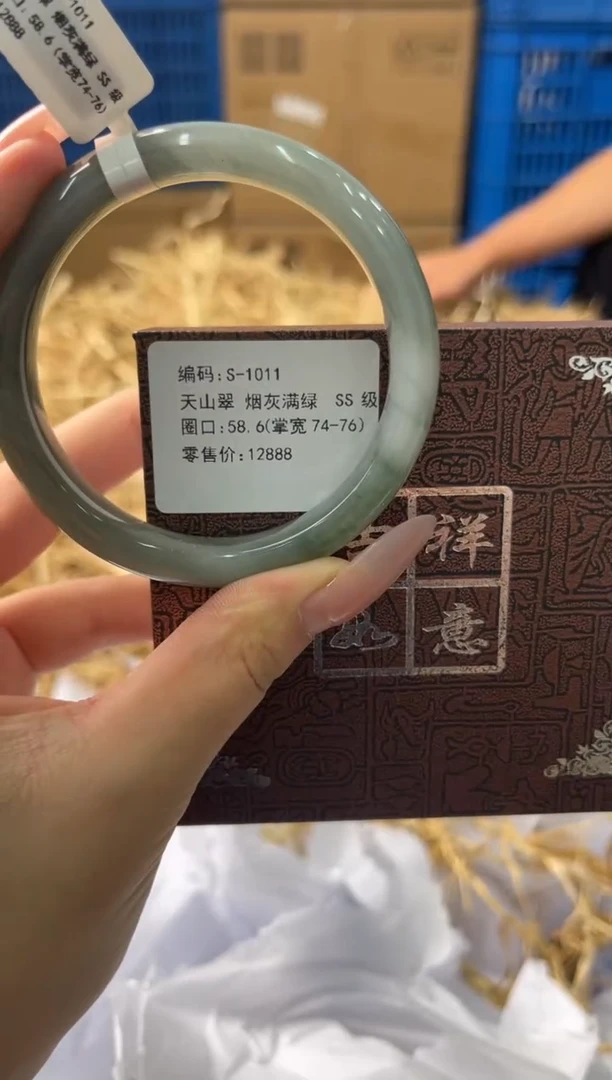 1011
烟灰满绿 SS 级
口:58.6(掌宽74-76)
12888
编码:S-1011
天山翠 烟灰满绿 SS 级
圈口:58.6(掌宽 74-76)
零售价:12888
祥
如意